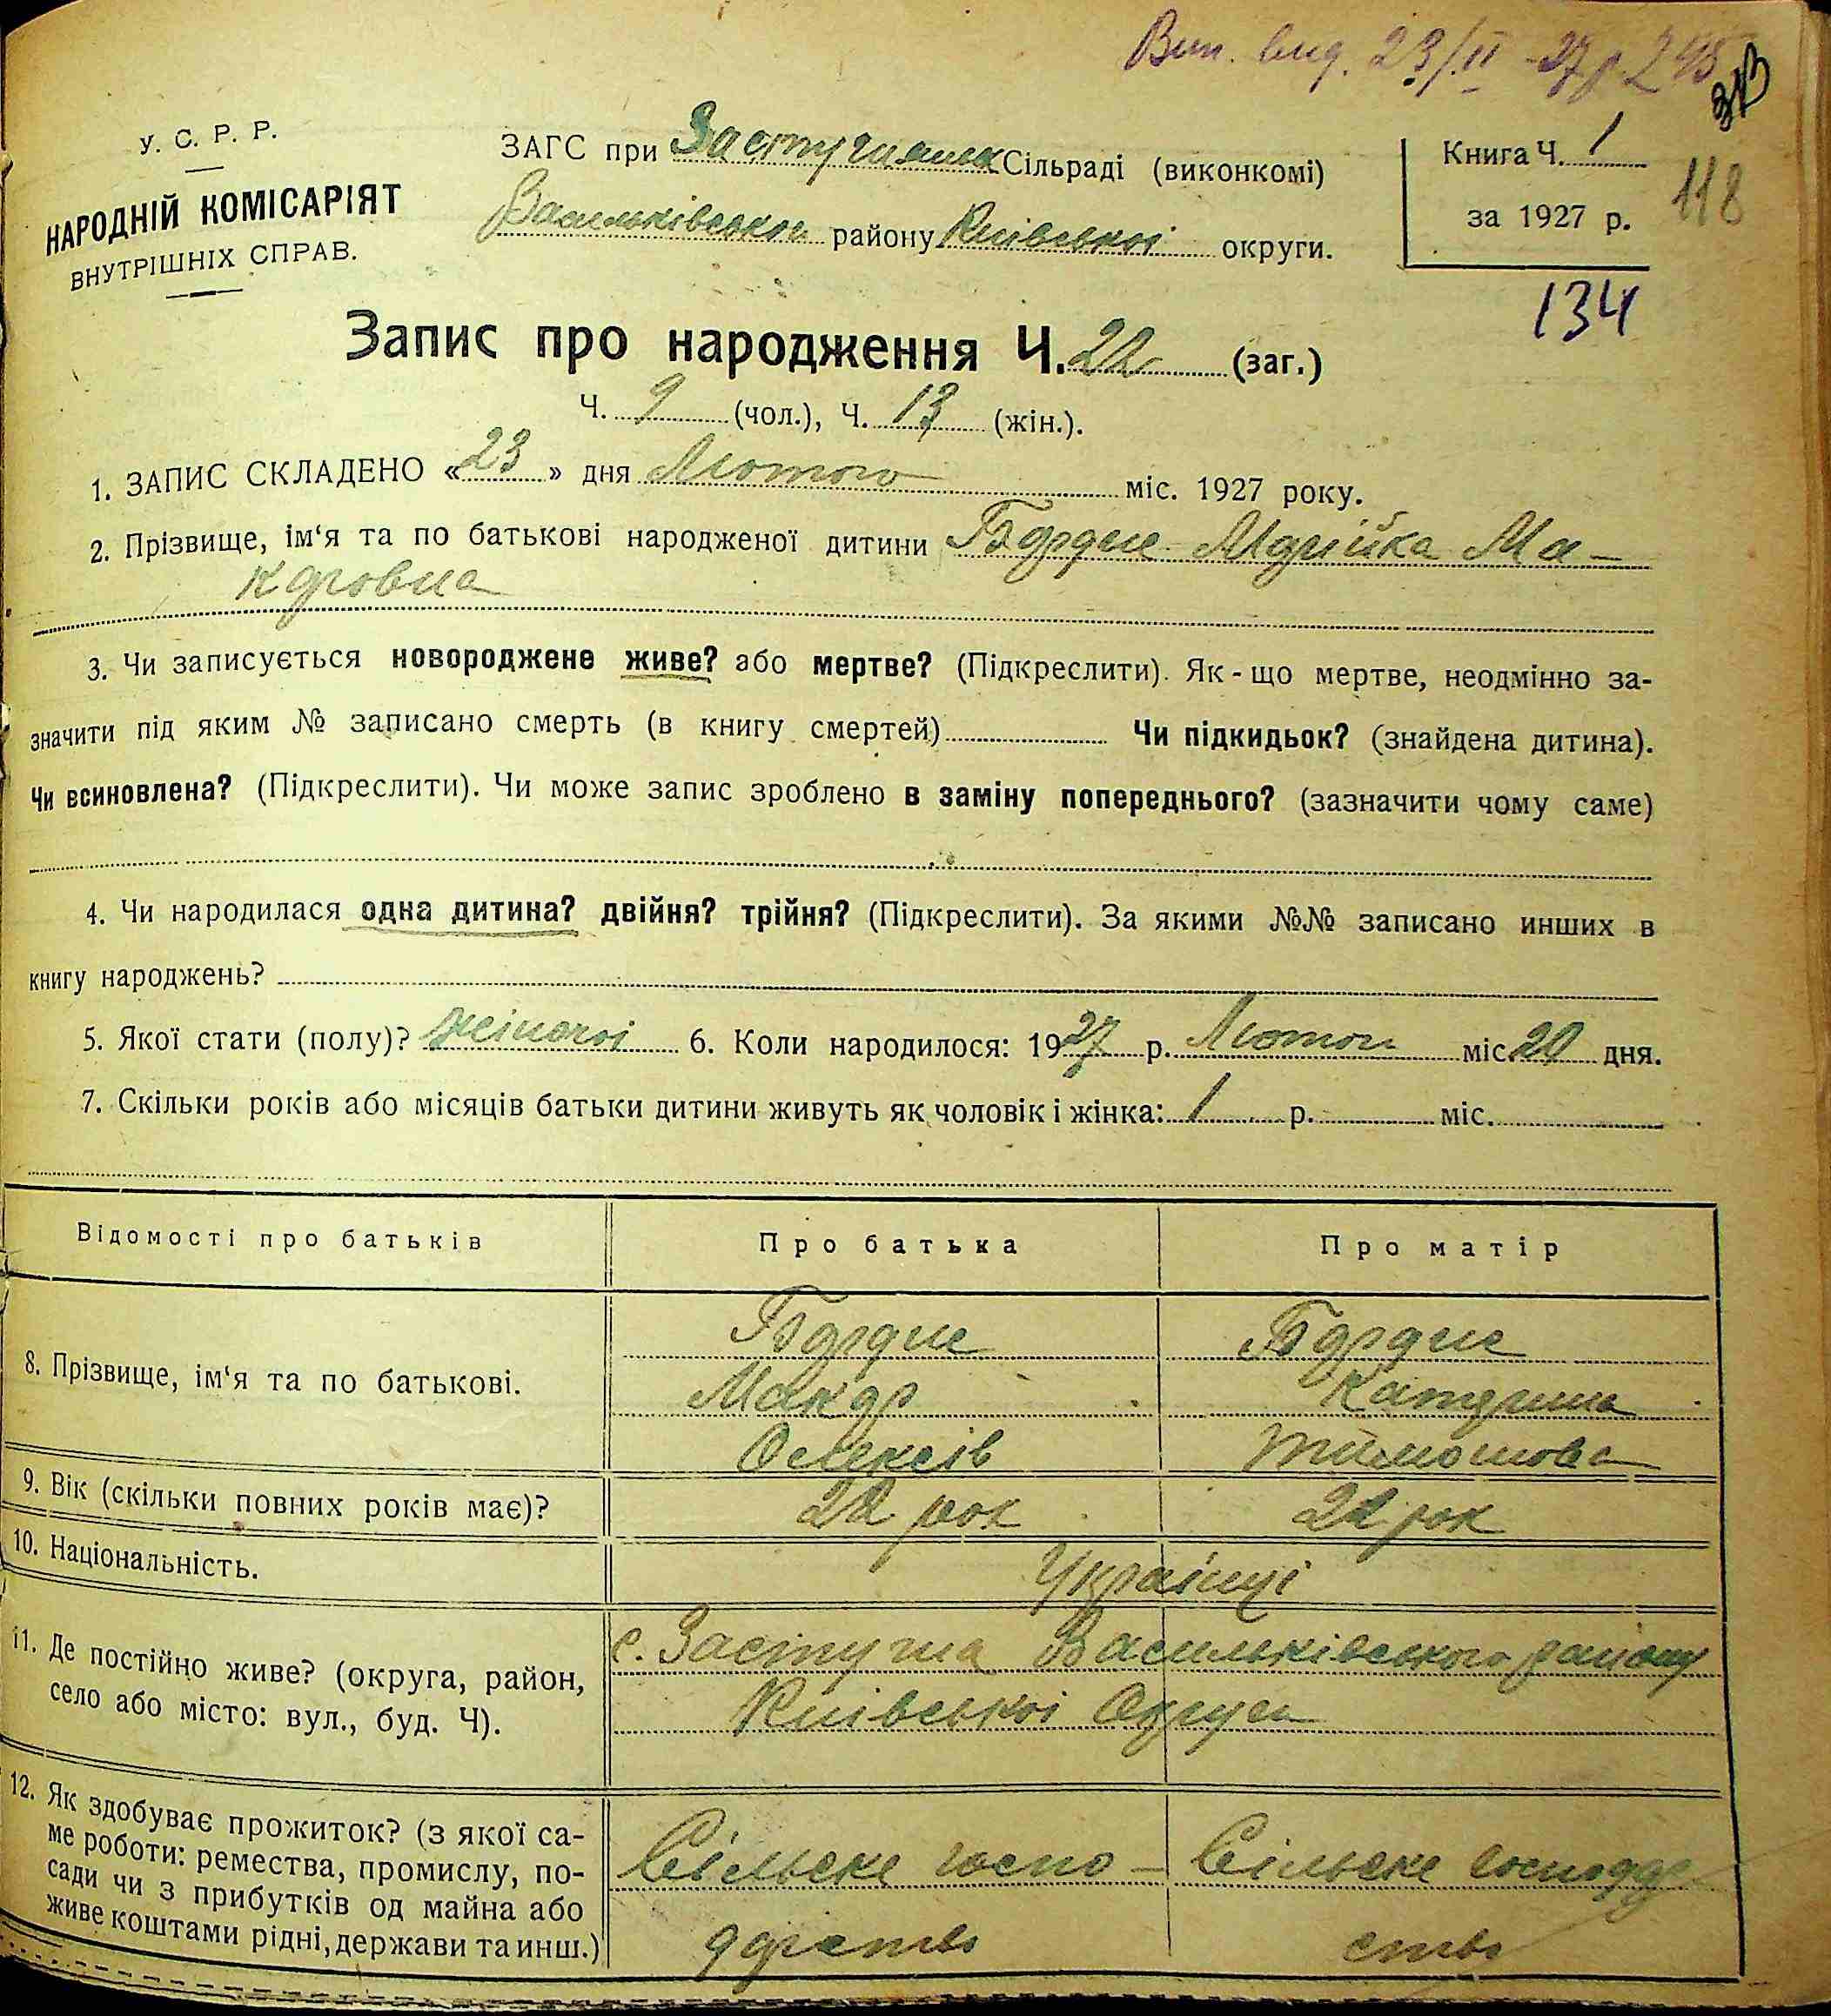 Вип. вид. 23/II - 27 р. 248
313
У. С. Р. Р.
НАРОДНІЙ КОМІСАРІЯТ
ВНУТРІШНІХ СПРАВ.
ЗАГС при Застугнянск Сільраді (виконкомі)
Васильківського району Київської округи.
Книга Ч. 1
за 1927 р.
118
134
Запис про народження Ч. 22 (заг.)
Ч. 9 (чол.), Ч. 13 (жін.).
1. ЗАПИС СКЛАДЕНО «23» дня Лютого міс. 1927 року.
2. Прізвище, ім‘я та по батькові народженої дитини Марійка Ма-
кровна
3. Чи записується новороджене живе? або мертве? (Підкреслити). Як-що мертве, неодмінно за-
значити під яким № записано смерть (в книгу смертей) Чи підкидьок? (знайдена дитина).
Чи всиновлена? (Підкреслити). Чи може запис зроблено в заміну попереднього? (зазначити чому саме)
4. Чи народилася одна дитина? двійня? трійня? (Підкреслити). За якими №№ записано инших в
книгу народжень?
5. Якої стати (полу)? жіночої 6. Коли народилося: 1927 р. Лютого міс. 20 дня.
7. Скільки років або місяців батьки дитини живуть як чоловік і жінка: 1 р. міс.
Відомості про батьків Про батька Про матір
8. Прізвище, ім‘я та по батькові.
Макар Катерина
Олексів Тимошова
9. Вік (скільки повних років має)? 22 рок 22 рок
10. Національність. Українці
11. Де постійно живе? (округа, район,
село або місто: вул., буд. Ч).
с. Застугна Васильківського району
Київської Округи
12. Як здобуває прожиток? (з якої са-
ме роботи: ремества, промислу, по-
сади чи з прибутків од майна або
живе коштами рідні, держави та инш.)
Сільске госпо- Сільске господар
дарство ство